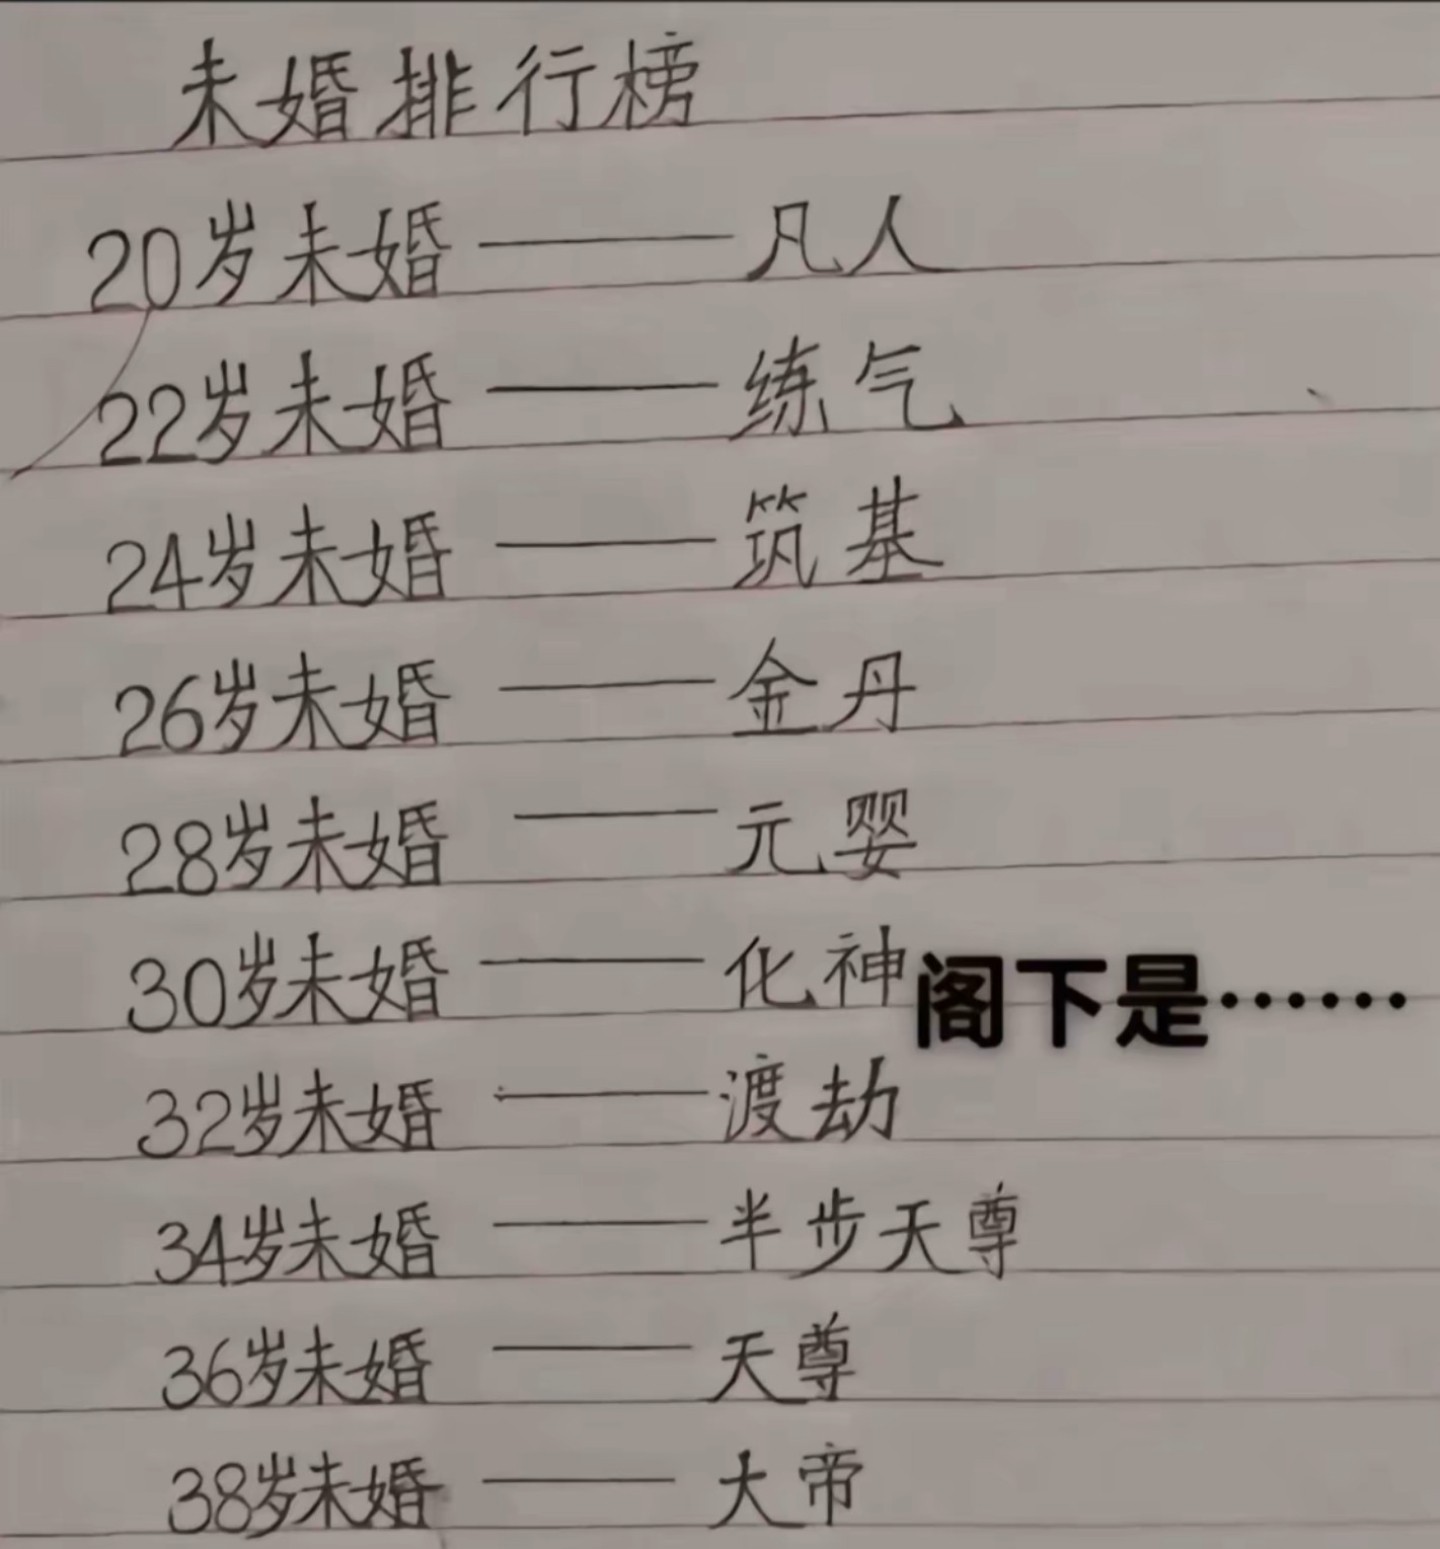 未婚排行榜
20岁未婚——凡人
22岁未婚——练气
24岁未婚——筑基
26岁未婚——金丹
28岁未婚——元婴
30岁未婚——化神
阁下是······
32岁未婚——渡劫
34岁未婚——半步天尊
36岁未婚——天尊
38岁未婚——大帝